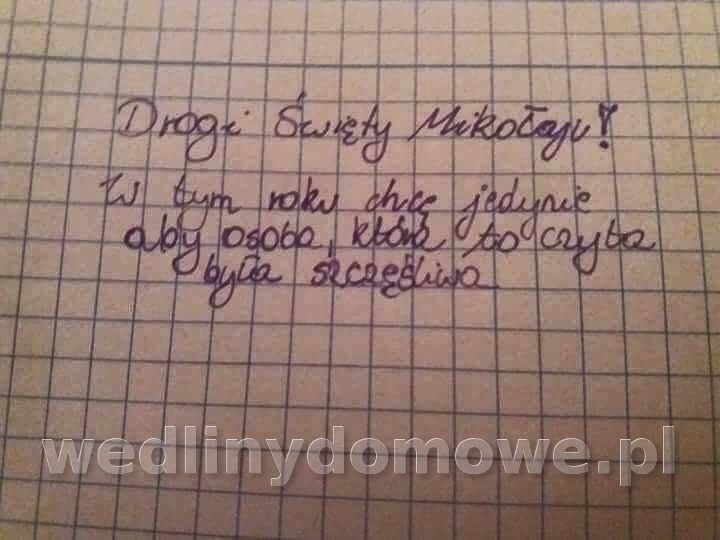 Drogi Święty Mikołaju!
W tym roku chcę jedynie
aby osoba, która to czyta
była szczęśliwa
wedlinydomowe.pl